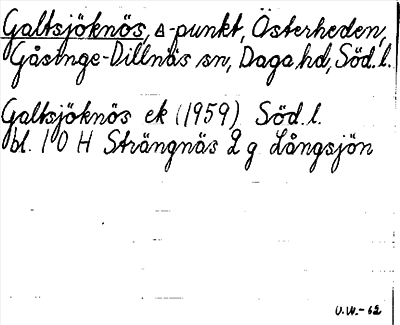 Galtsjöknös, △-punkt, Österheden,
Gåsinge-Dillnäs sn, Daga hd, Söd. l.
Galtsjöknös ek (1959) Söd. l.
bl. 10 H Strängnäs 2 g Långsjön
U.W.-62